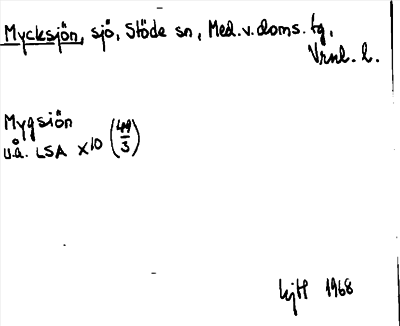 Mycksjön, sjö, Stöde sn, Med.v.doms.tg,
Vrnl. l.
Mygsiön
u.å. LSA X10 (49/3)
1968